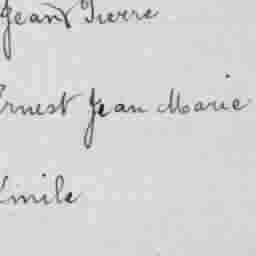 Jean Pierre
Ernest Jean Marie
Emile